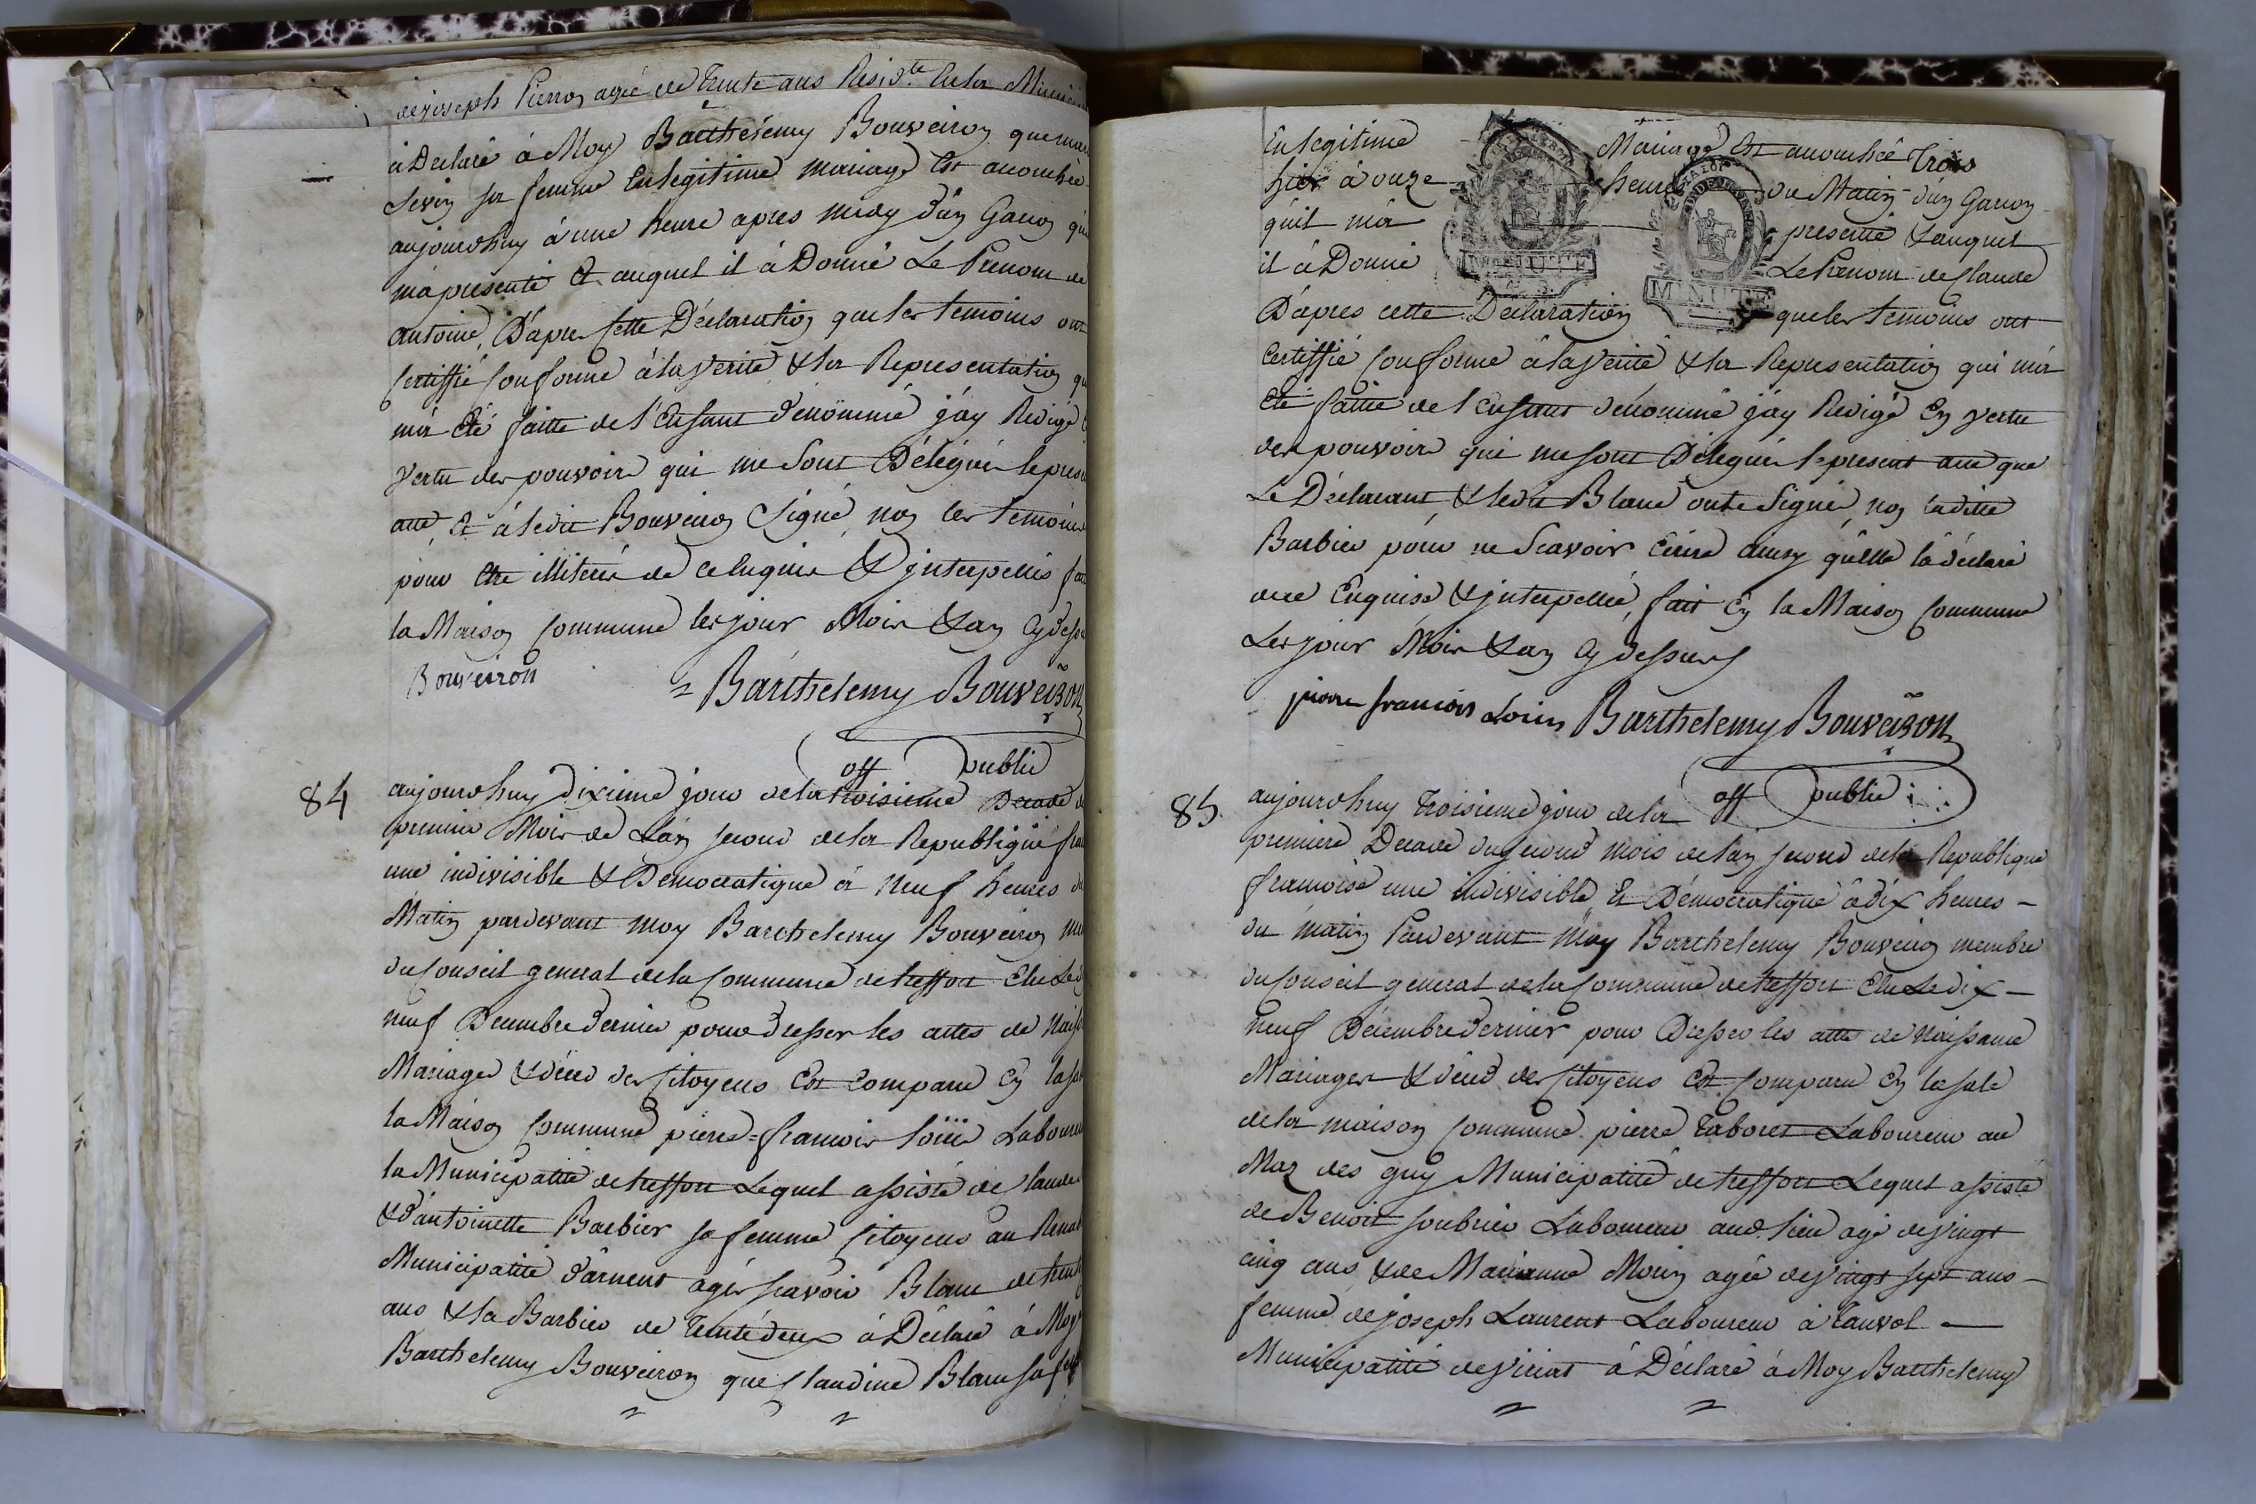 de joseph Pierron agée de trente ans Resid.te En la
à Declaré à Moy Barthelemy Bouveiron que
Sevin sa femme En legitime mariage Est accouchée
aujourdhuy à une heure apres midy d'un Garcon
m'a presenté Et auquel il à Donné Le Prenom de
antoine, D'apres Cette Déclaration que les temoins ont
Certiffié Conforme à la Verité & la Representation
m'a Eté faitte de l'Enfant denommé j'ay Redigé
Vertu des pouvoirs qui me Sont Délégués le
acte, Et à ledit Bouveiron Signé, non les temoins
pour être illiterés de ce Enquis & jnterpellés
la Maison Commune les jour Mois & an Cy
Bouveiron = Barthelemy Bouveiron
off public
84 aujourdhuy dixieme jour de la troisieme Decade
premier Mois de L'an second de la Republique
une indivisible & Democratique à Neuf heures
Matin pardevant moy Barthelemy Bouveiron
du Conseil general de la Commune de treffort Elu Le
neuf Decembre dernier pour dresser les actes de
Mariages & décés des Citoyens Est Comparu En la
la Maison Commune pierre=francois
la Municipalité de treffort Lequel assisté de
& d'antoinette Barbier sa femme Citoyens au
Municipalité d'arnens agés scavoir Blanc de
ans & la Barbier de trente deux à Déclaré à Moy
Barthelemy Bouveiron que Claudine Blanc sa
En legitime Mariage Est accouchée Trois
hier à onze heures du Matin d'un Garcon
qu'il m'a presenté & auquel
il à Donné Le Prenom de Claude
D'apres cette Déclaration que les temoins ont
Certiffié Conforme à la Verité & la Representation qui m'a
Eté faitte de l'Enfant denommé j'ay Redigé En Vertu
des pouvoirs qui me sont Délegués le present acte que
Le Déclarant & ledit Blanc ont Signé, non la ditte
Barbier pour ne Scavoir Ecrire ainsy qu'elle l'a déclaré
de ce Enquise & jnterpellée, fait En la Maison Commune
Les jour Mois & an Cy dessus
pierre francois Barthelemy Bouveiron
off public
85 aujourdhuy troisieme jour de la
premiere Decade du second mois de l'an second de la Republique
francoise une indivisible Et Démocratique à dix heures
du matin Pardevant Moy Barthelemy Bouveiron membre
du Conseil general de la Commune de treffort Elu Le dix
neuf Décembre dernier pour Dresser les actes de Naissance
Mariages & décés des Citoyens Est Comparu En la sale
de la maison Commune pierre Laboureur au
Maz des guy Municipalité de treffort Lequel assisté
de Benoit Laboureur aud. lieu agé de Vingt
cinq ans & de Marianne Morin agée de Vingt sept ans
femme de joseph Laurent Laboureur à
Municipalité de Viriat à Déclaré à Moy Barthelemy
MINUTE
MINUTE